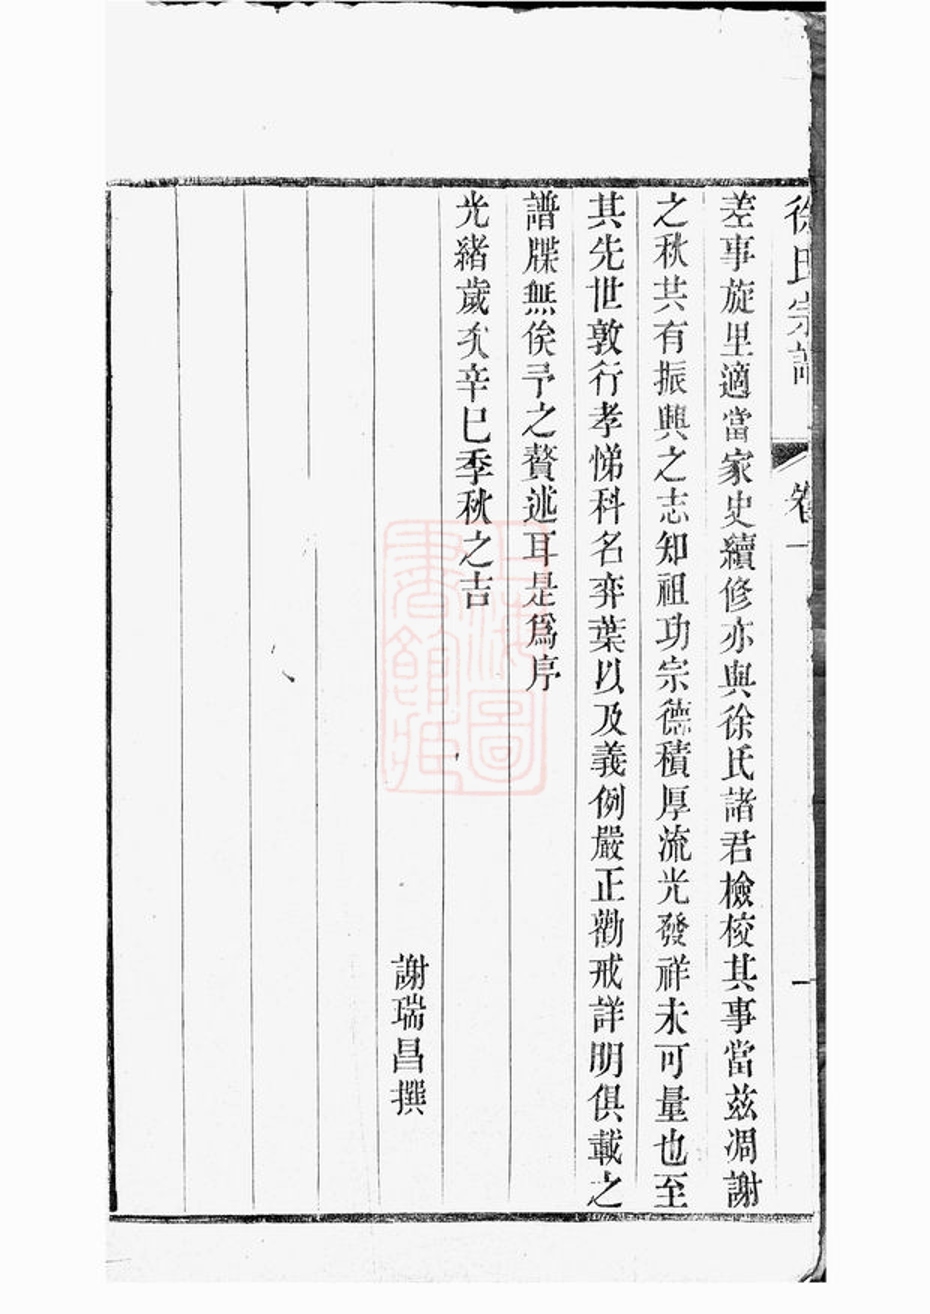 徐氏宗譜
卷一
一
差事旋里適當家史續修亦與徐氏諸君檢校其事當茲凋謝
之秋共有振興之志知祖功宗德積厚流光發祥未可量也至
其先世敦行孝悌科名弈葉以及義例嚴正勸戒詳明俱載之
譜牒無俟予之贅述耳是爲序
光緒歲次辛巳季秋之吉
謝瑞昌撰
上海圖
書館藏